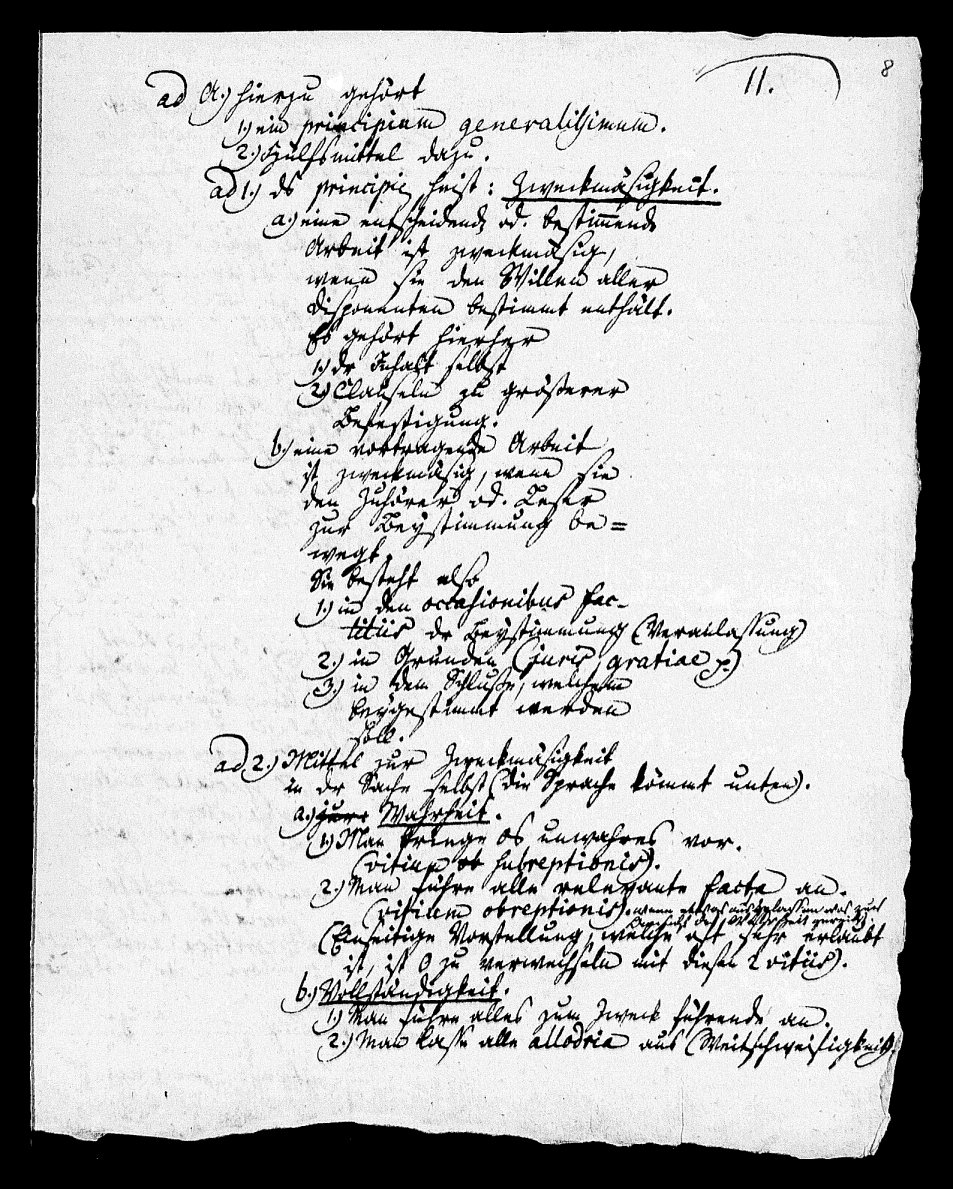 11.
8
ad A.) Hierzu gehört
1.) ein principium generalissimum.
2.) Hülfsmittel dazu.
ad 1.) ds principie heist: Zweckmäsigkeit.
a.) eine entscheidende od. bestim̄ende
Arbeit ist zweckmäsig,
wenn sie den Willen aller
Disponenten bestimmt enthält.
Es gehört hierher
1.) dr Inhalt selbst
2.) Clauseln zu größerer
Befestigung.
b.) eine vortragende Arbeit
ist zweckmäsig, wenn sie
den Zuhörer od. Leser
zur Beystimmung be=
wegt.
Sie besteht also
1.) in den occasionibus fac-
titiis dr Beystimmung (Veranlassung)
2.) in Gründen (juris, gratiae p.)
3.) in dem Schluße, welchem
beygestimmt werden
soll.
ad 2.) Mittel zur Zweckmäsigkeit
in dr Sache selbst (die Sprache kömmt unten).
a.) Wahrheit.
1.) Man bringe 0s unwahres vor.
(vitium subreptionis).
2.) Man führe alle relevante facta an.
(vitium obreptionis). wenn etwas ausgelassen was zur
Wahrheit
(Einseitige Vorstellung, welche oft sehr erlaubt
ist, ist 0 zu verwechseln mit diesen 2 vitiis).
b.) Vollständigkeit.
1.) Man führe alles zum Zweck führende an.
2.) Man lasse alle allodria aus (Weitschweifigkeit).